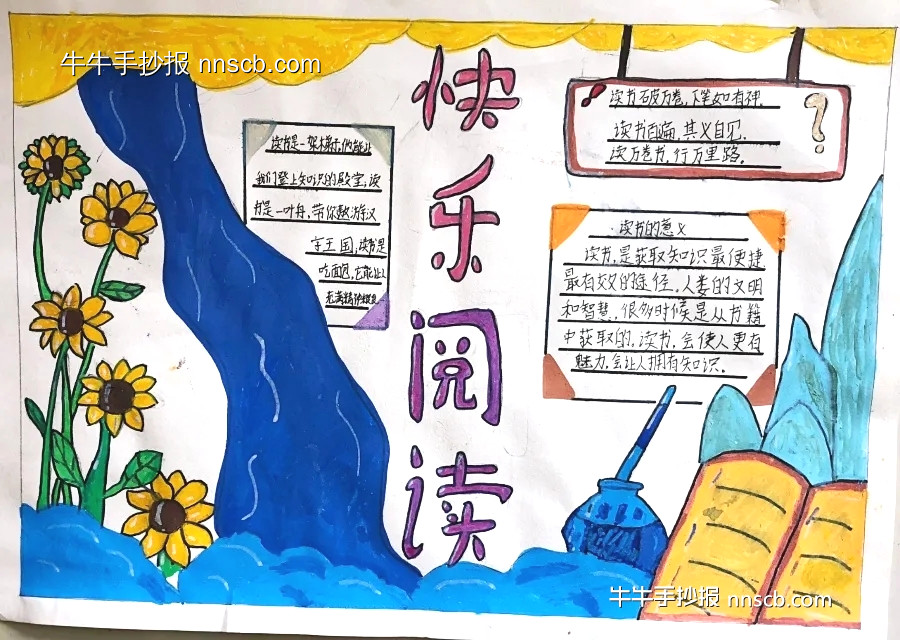 牛牛手抄报 nnscb.com
快乐阅读
读书是一架梯子,他能让
我们登上知识的殿堂,读
书是一叶舟,带你遨游汉
字王国,读书是
吃面包,它能让人
充满精神
读书破万卷,下笔如有神.
读书百遍,其义自见.
读万卷书,行万里路.
读书的意义
读书,是获取知识最便捷
最有效的途径,人类的文明
和智慧,很多时候是从书籍
中获取的,读书,会使人更有
魅力,会让人拥有知识.
牛牛手抄报 nnscb.com